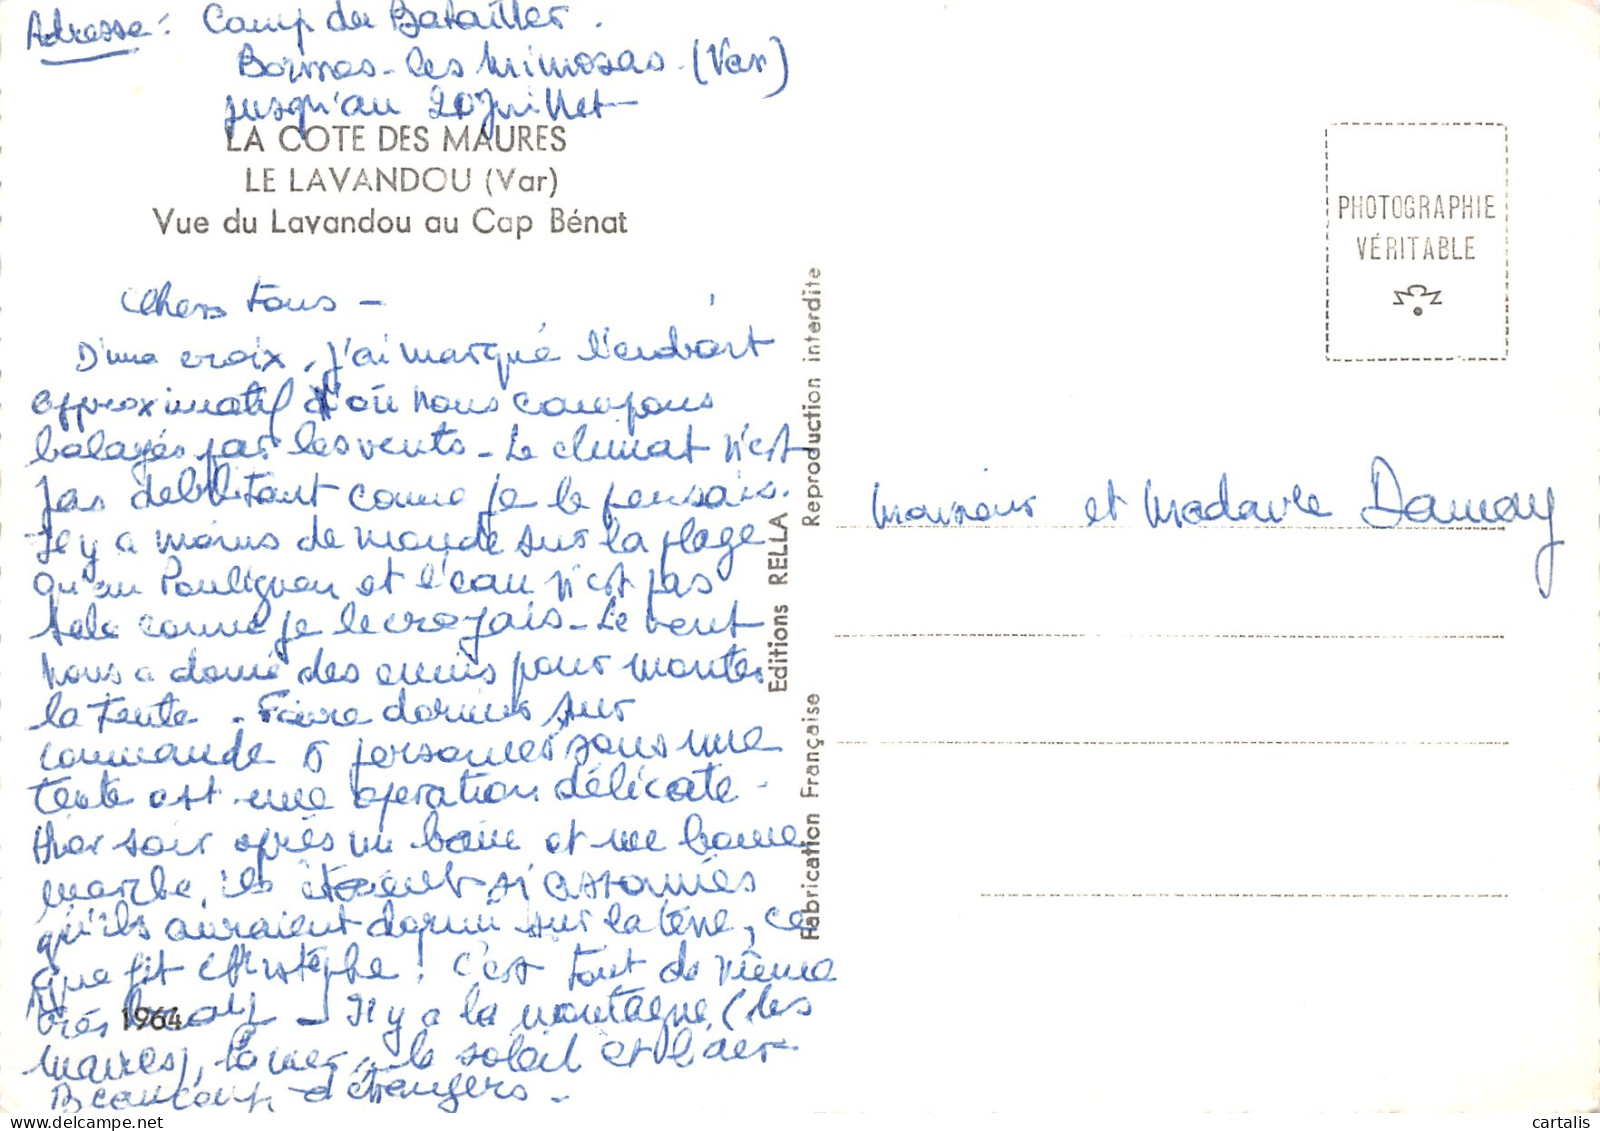 Adresse : Camp du Batailler.
Bormes-les Mimosas (Var)
jusqu'au 20 Juillet
LA COTE DES MAURES
LE LAVANDOU (Var)
Vue du Lavandou au Cap Bénat
Chers tous -
D'une croix, j'ai marqué l'endroit
approximatif d'où nous campons
balayés par les vents - Le climat n'est
pas debilitant comme je le pensais.
Il y a moins de monde sur la plage
qu'au Pouliguen et l'eau n'est pas
sale comme je le croyais - Le vent
nous a donné des ennuis pour monter
la tente - Faire dormir sur
commande 5 personnes sous une
tente est une operation délicate -
Hier soir après un bain et une bonne
marche, ils étaient si assommés
qu'ils auraient dormi sur la terre, ce
que fit Christophe ! C'est tout de même
très beau - Il y a la montagne (les
Maures), la mer, le soleil et l'air
Beaucoup d'étrangers -
1964
Editions RELLA Reproduction interdite
Fabrication Française
PHOTOGRAPHIE
VÉRITABLE
Monsieur et Madame Damay
cartalis
www.delcampe.net